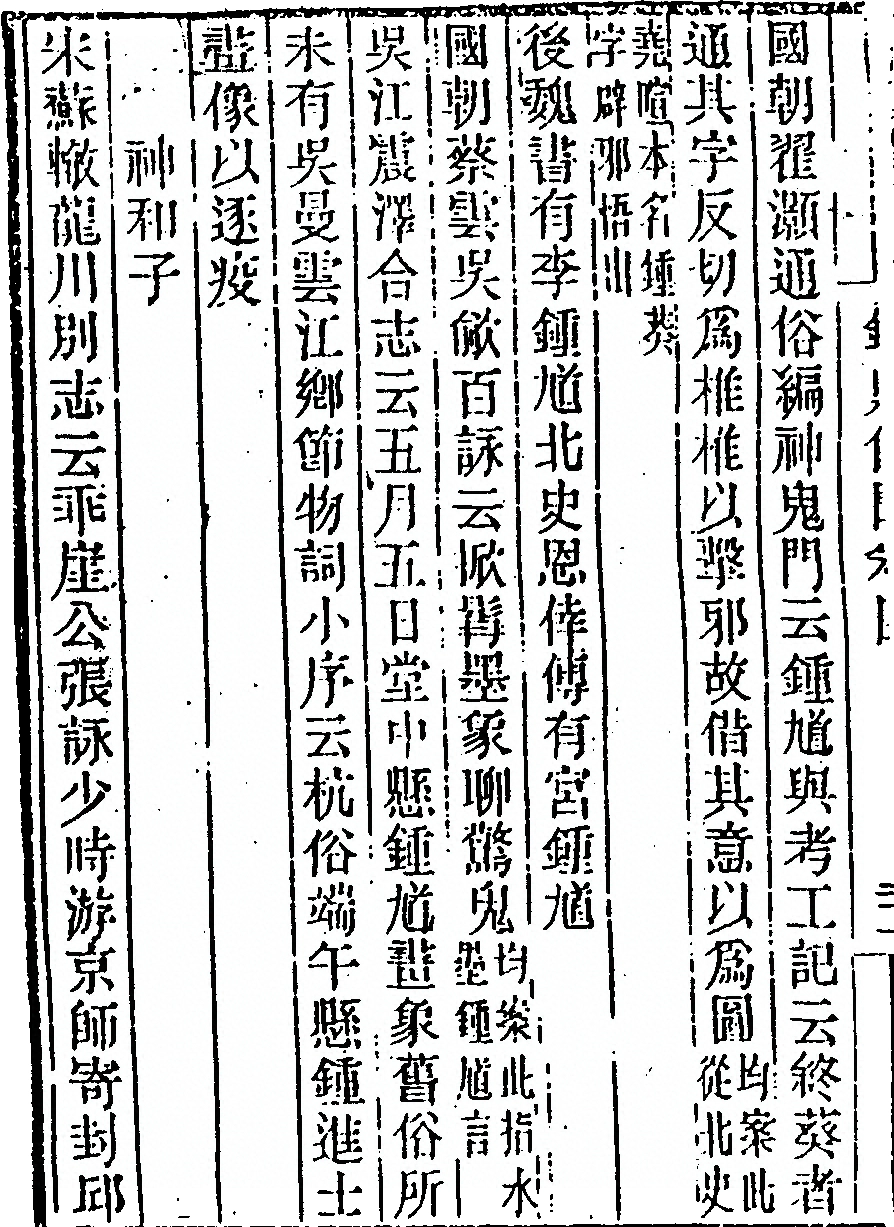 國朝翟灝通俗編神鬼門云鍾馗與考工記云終葵者
通其字反切爲椎椎以擊邪故借其意以爲圖均案此從北史
堯暄本名鍾葵字辟邪悟出
後魏書有李鍾馗北史恩倖傳有宮鍾馗
國朝蔡雲吳歈百詠云掀髯墨象聊驚鬼均案此指水墨鍾馗言
吳江震澤合志云五月五日堂中懸鍾馗畫象舊俗所
未有吳曼雲江鄉節物詞小序云杭俗端午懸鍾進士
畫像以逐疫
神和子
宋蘇轍龍川別志云乖崖公張詠少時游京師寄封邱